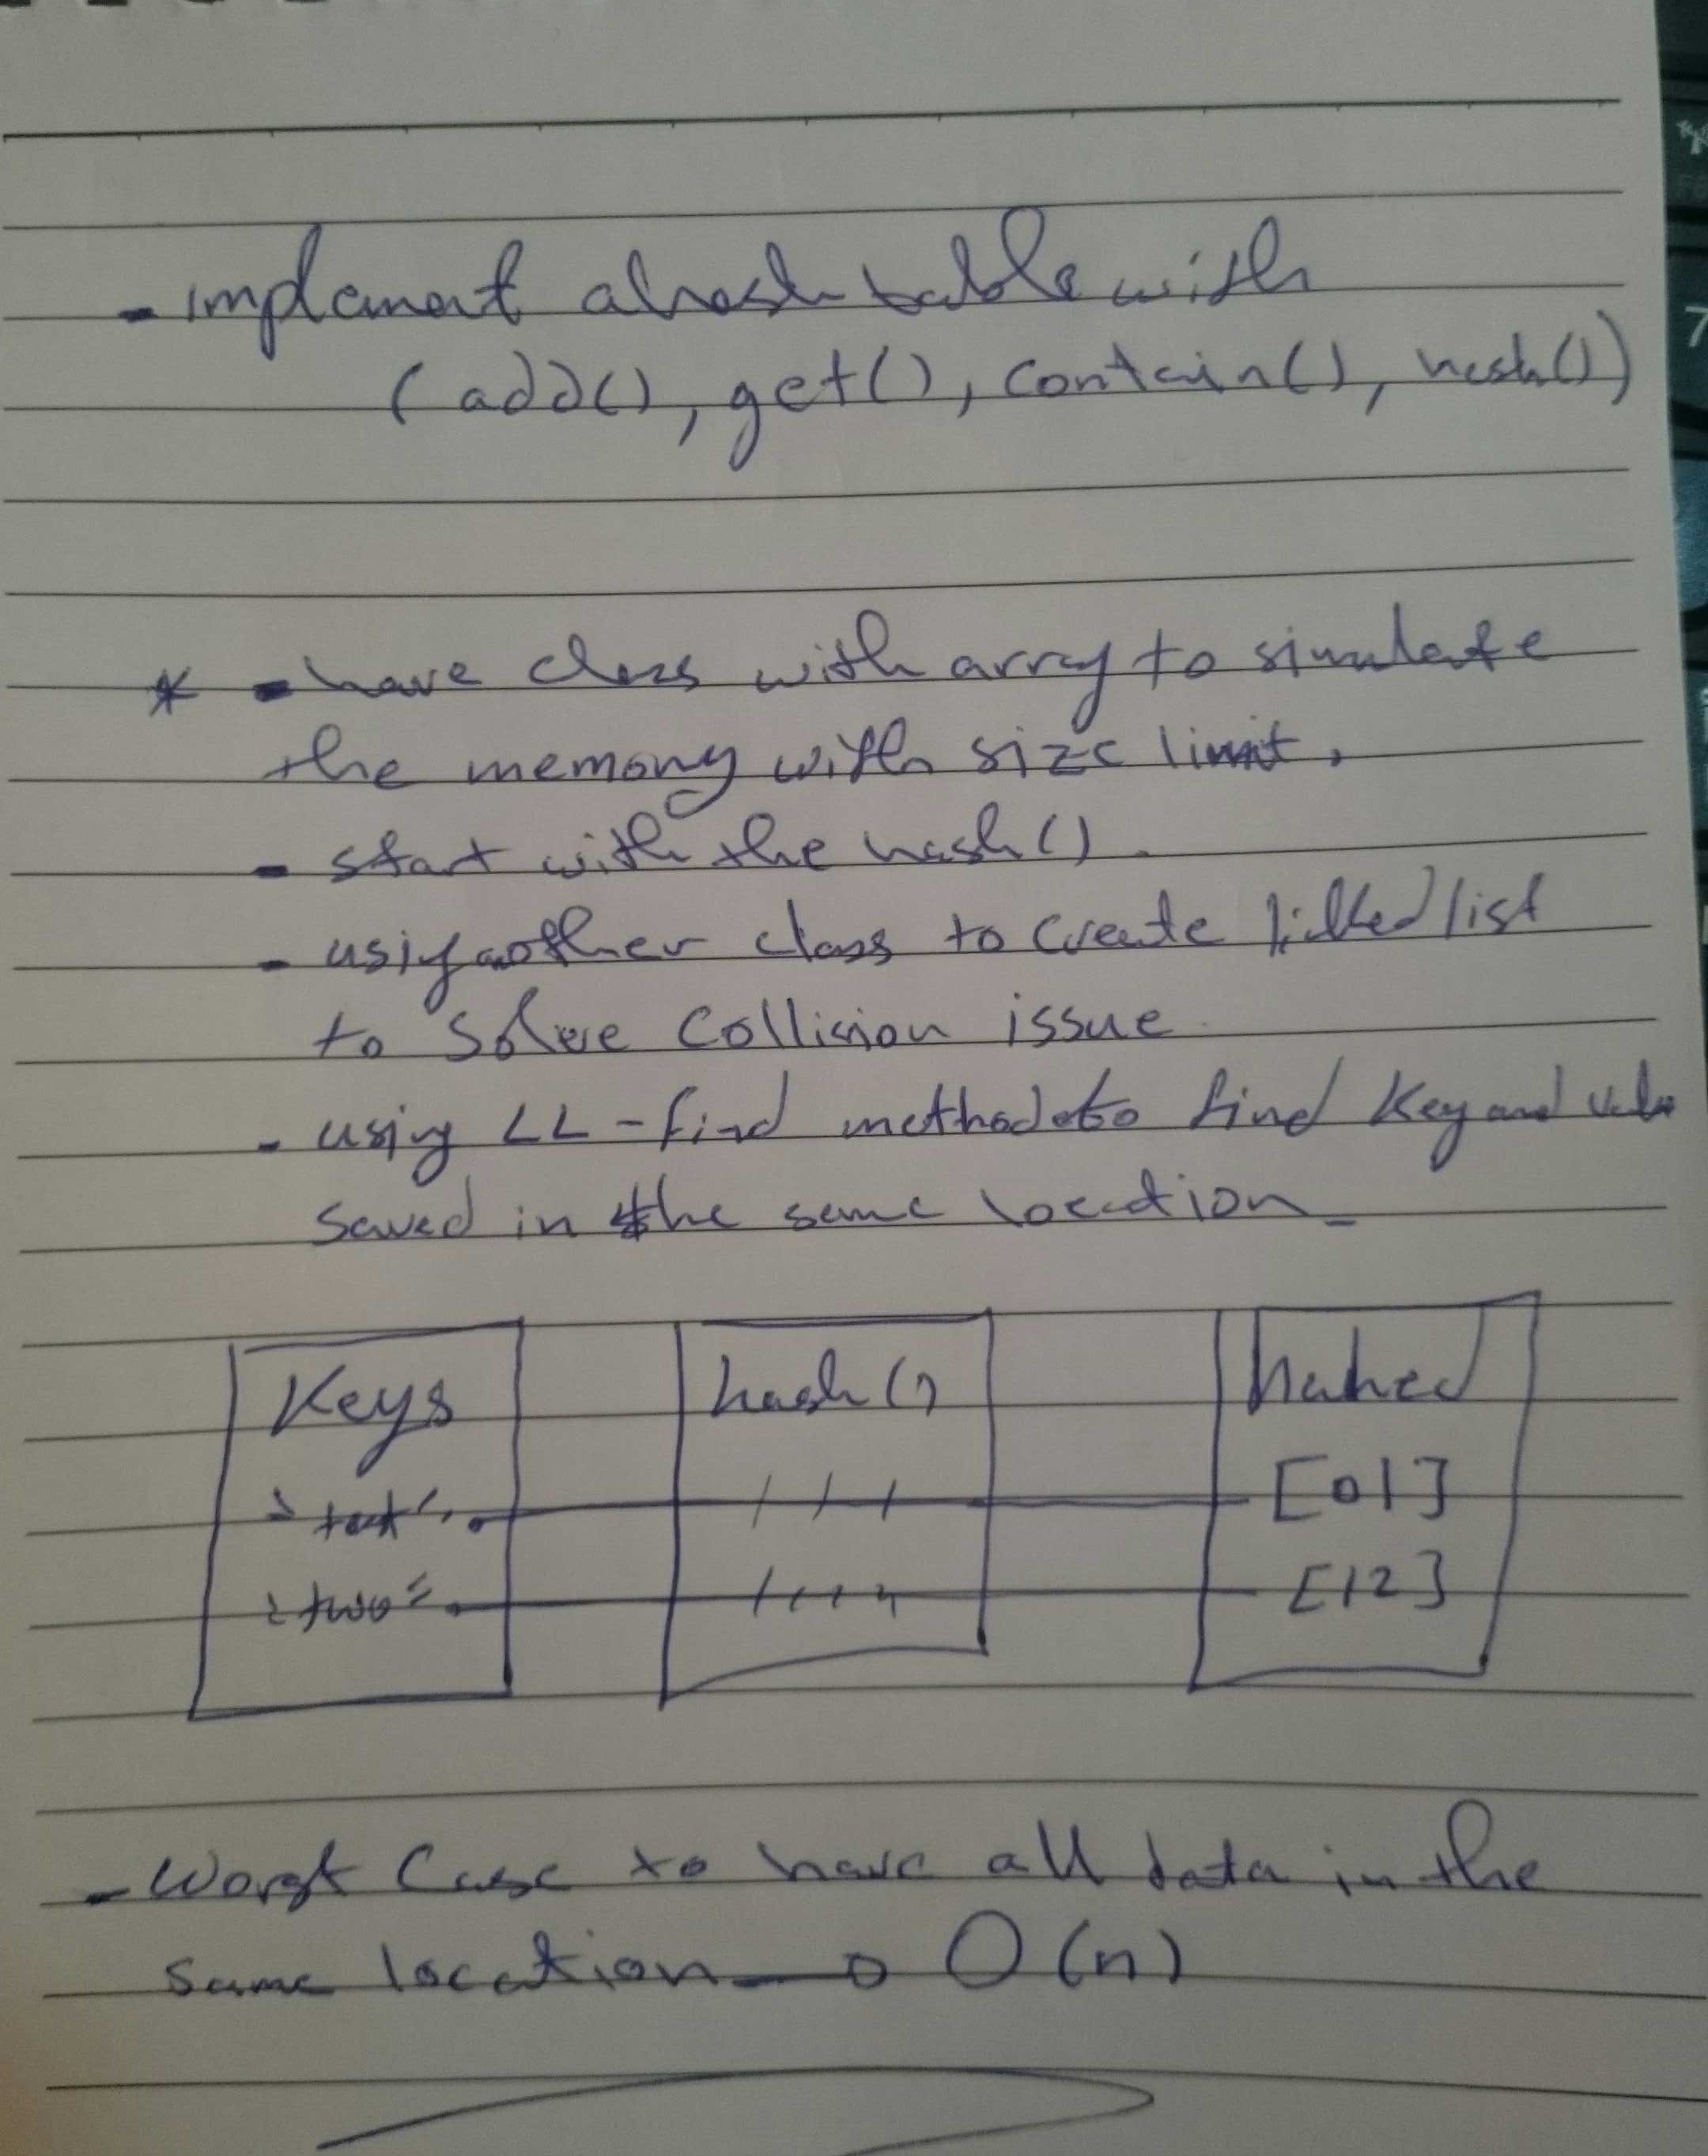 - implement a hash table with
( add(), get(), contain(), hash() )
* - have class with array to simulate
the memory with size limit.
- start with the hash().
- using another class to create linked list
to solve collision issue.
- using LL - find method to find key and value
saved in the same location
Keys hash() hashed
[01]
"two" [12]
- Worst Case to have all data in the
same location → O(n)